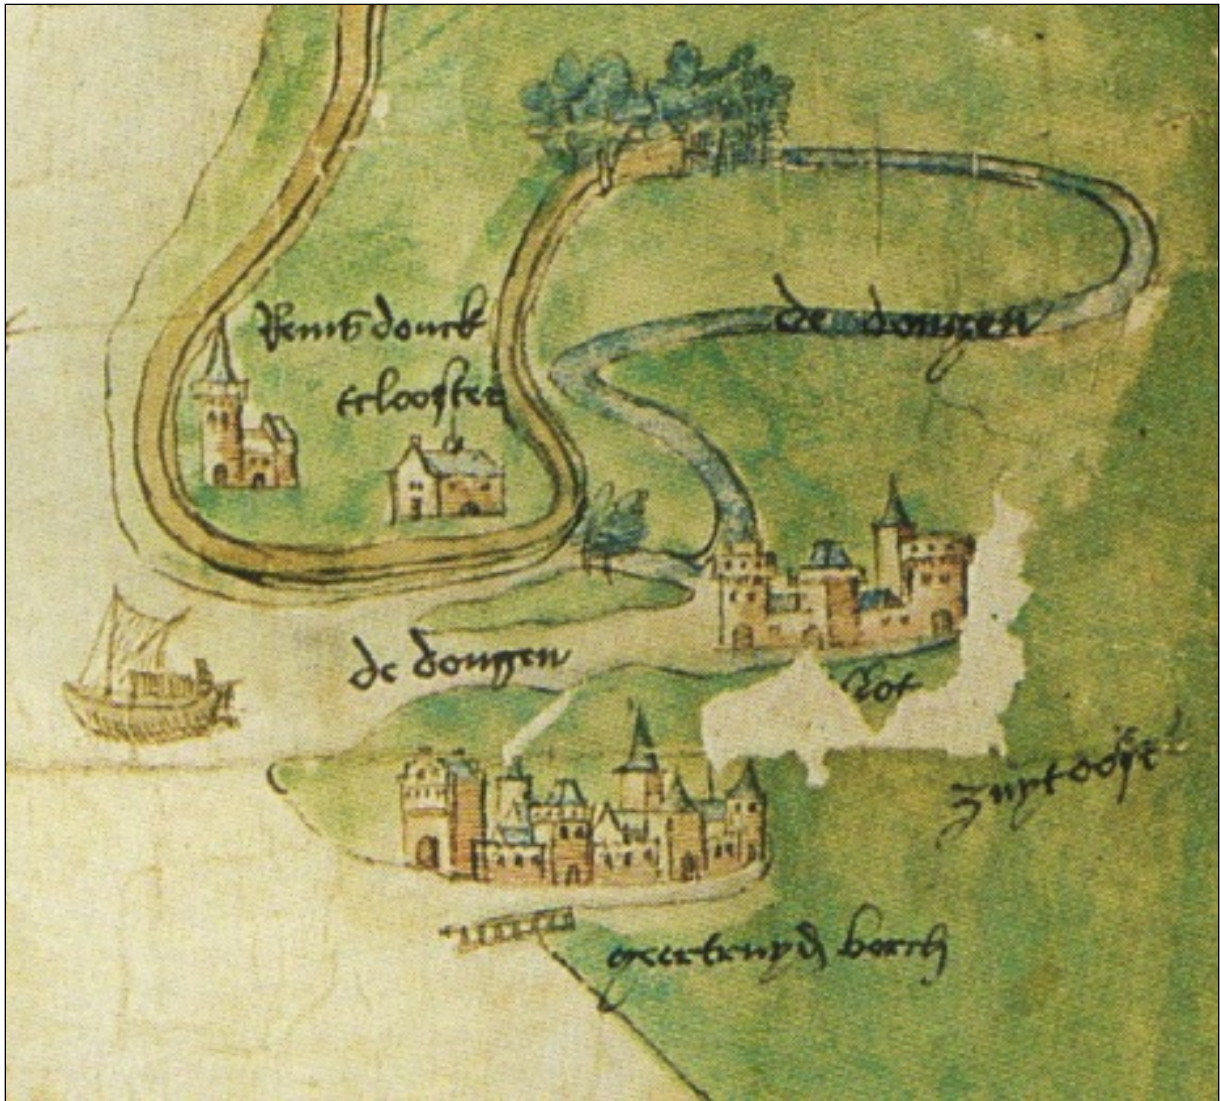 Rems donck
clooster
de dongen
de dongen
slot
zuytoost
geertruyd berch